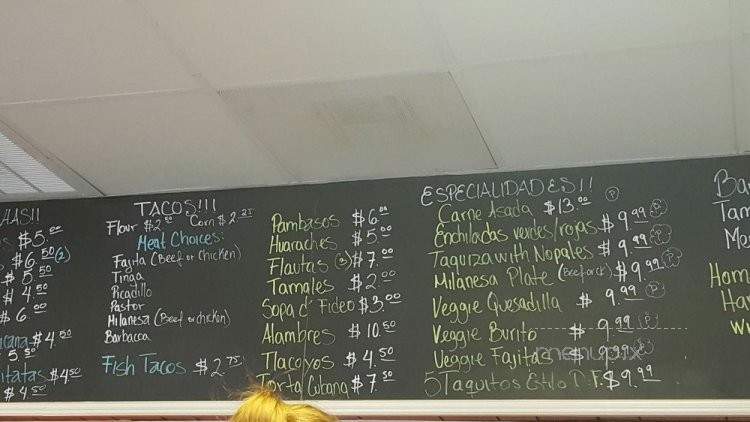 $5.00
$6.50 (2)
$5.50
$4.50
$6.00
$4.50
$5.50
$4.50
$4.50
TACOS!!!
Flour $2.50 Corn $2.25
Meat Choices:
Fajita (Beef or Chicken)
Tinga
Picadillo
Pastor
Milanesa (Beef or chicken)
Barbacca
Fish Tacos $2.75
Pambasos $6.00
Huaraches $5.00
Flautas (3) $7.00
Tamales $2.00
Sopa d' Fideo $3.00
Alambres $10.50
Tlacoyos $4.50
Torta Cubana $7.50
ESPECIALIDADES!!
Carne Asada $13.00
Enchiladas verdes/rojas $9.99
Taquiza with Nopales $9.99
Milanesa Plate (Beef or ck) $9.99
Veggie Quesadilla $9.99
Veggie Burito $9.99
Veggie Fajitas $9.99
5 Taquitos Estilo D.F. $9.99
menupix